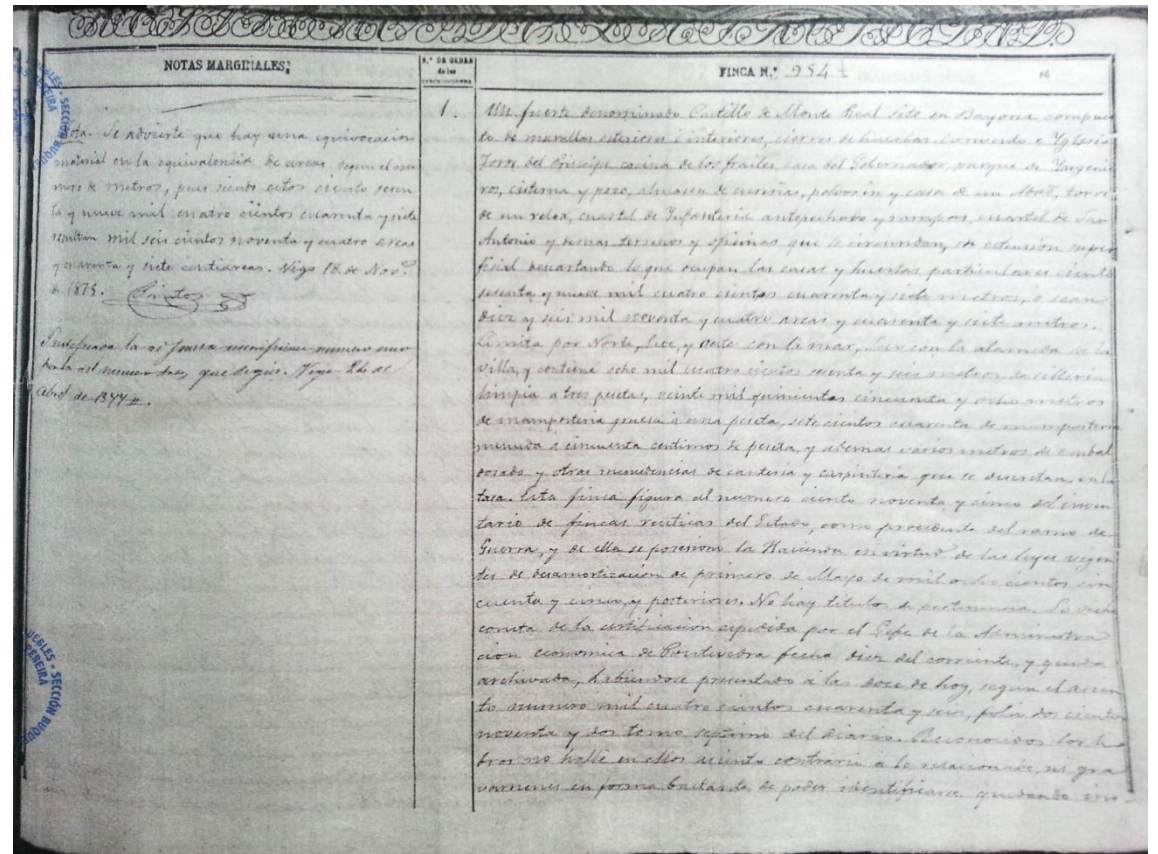 NOTAS MARGINALES;
N.º DE ORDEN
de las
FINCA N.º 954
1.
Nota. Se advierte que hay una equivocacion
material en la equivalencia de areas, segun el nu
mero de metros, pues siendo estos ciento sesen
ta y nueve mil cuatro cientos cuarenta y siete
resultan mil seis cientos noventa y cuatro areas
y cuarenta y siete centiareas. Vigo 18 de Nov.e
de 1875.
numero uno
que sigue. Vigo 2 de
Abril de 1877
Un fuerte denominado Castillo de Monte Real sito en Bayona, compues
to de murallas esteriores é interiores, cierros de huertas, convento é Yglesia
Torre del Principe cocina de los frailes casa del Gobernador, parque de Yngenie
ros, cisterna y pozo, almacen de cureñas, polvorin y casa de un Abad, torre
de un relox, cuartel de Ynfanteria antepechado y rampas, cuartel de San
Antonio y demas terrenos y oficinas que le circundan, su estension super
ficial descartando lo que ocupan las casas y huertas particulares ciento
sesenta y nueve mil cuatro cientos cuarenta y siete metros, ó sean
diez y seis mil noventa y cuatro areas y cuarenta y siete metros.
Limita por Norte, Este, y Oeste con la mar, Sur con la alameda de la
villa, y contiene ocho mil cuatro cientos sesenta y seis metros de silleria
limpia a tres pesetas, veinte mil quinientos cincuenta y ocho metros
de mamposteria gruesa á una peseta, siete cientos cuarenta de mamposteria
menuda á cincuenta centimos de peseta, y ademas varios metros de embal
dosado y otras menudencias de canteria y carpinteria que se en la
tasa. Esta finca figura al numero ciento noventa y cinco del inven
tario de fincas rusticas del Estado, como procedente del ramo de
Guerra, y de ella se posesionó la Hacienda en virtud de las leyes vigen
tes de desamortizacion de primero de Mayo de mil ocho cientos cin
cuenta y cinco, y posteriores. No hay titulos de pertenencia. Lo
consta de la certificacion espedida por el Gefe de la Administra
cion economica de Pontevedra fecha diez del corriente, y queda
archivada, habiendose presentado a las doce de hoy, segun el asien
to numero mil cuatro cientos cuarenta y seis, folio dos cientos
noventa y dos tomo septimo del diario. Reconocidos los li
bros no hallé en ellos asiento contrario a lo relacionado, ni gra
vamenes en forma bastante de poder identificarse quedando